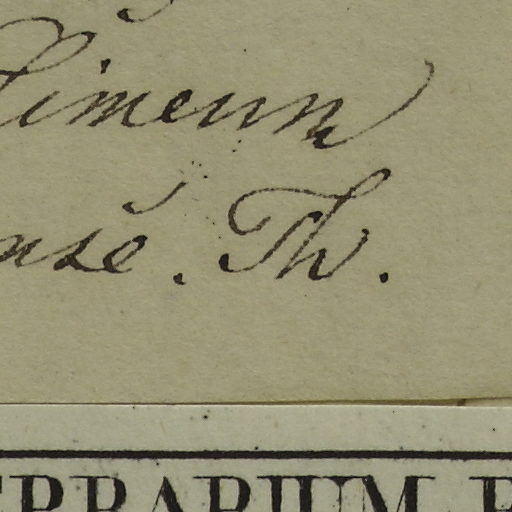 Limeum
nse. Th.
ERBARIUM